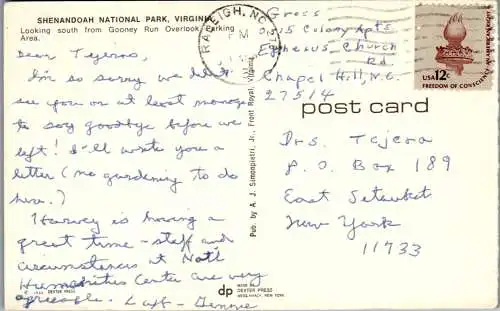 SHENANDOAH NATIONAL PARK, VIRGINIA
Looking south from Gooney Run Overlook Parking
Area.
Dear Tejeras,
I'm so sorry we didn't
see you or at least manage
to say goodbye before we
left! I'll write you a
letter (no gardening to do
here.)
Harvey is having a
great time - staff and
circumstances at Nat'l
Humanities Center are very
agreeable. Love -
DEXTER PRESS
Pub. by A. J. Simonpietri, Jr., Front Royal, Virginia
dp
MADE BY
DEXTER PRESS
WEST NYACK, NEW YORK
RALEIGH, NC
PM
USA 12c
FREEDOM OF CONSCIENCE
Gross
Colony Apts.
Ephesus Church
Rd.
Chapel Hill, N.C.
27514
post card
Drs. Tejera
P.O. Box 189
East Setauket
New York
11733